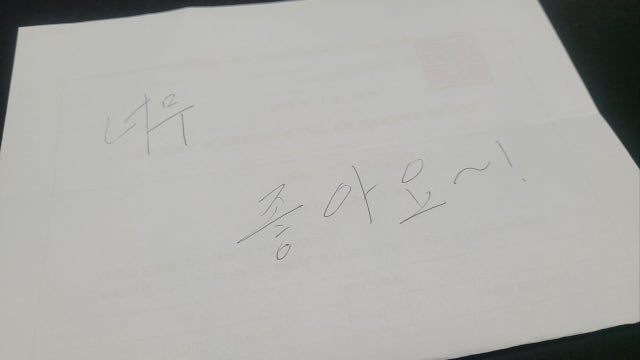 너무
좋아요~!